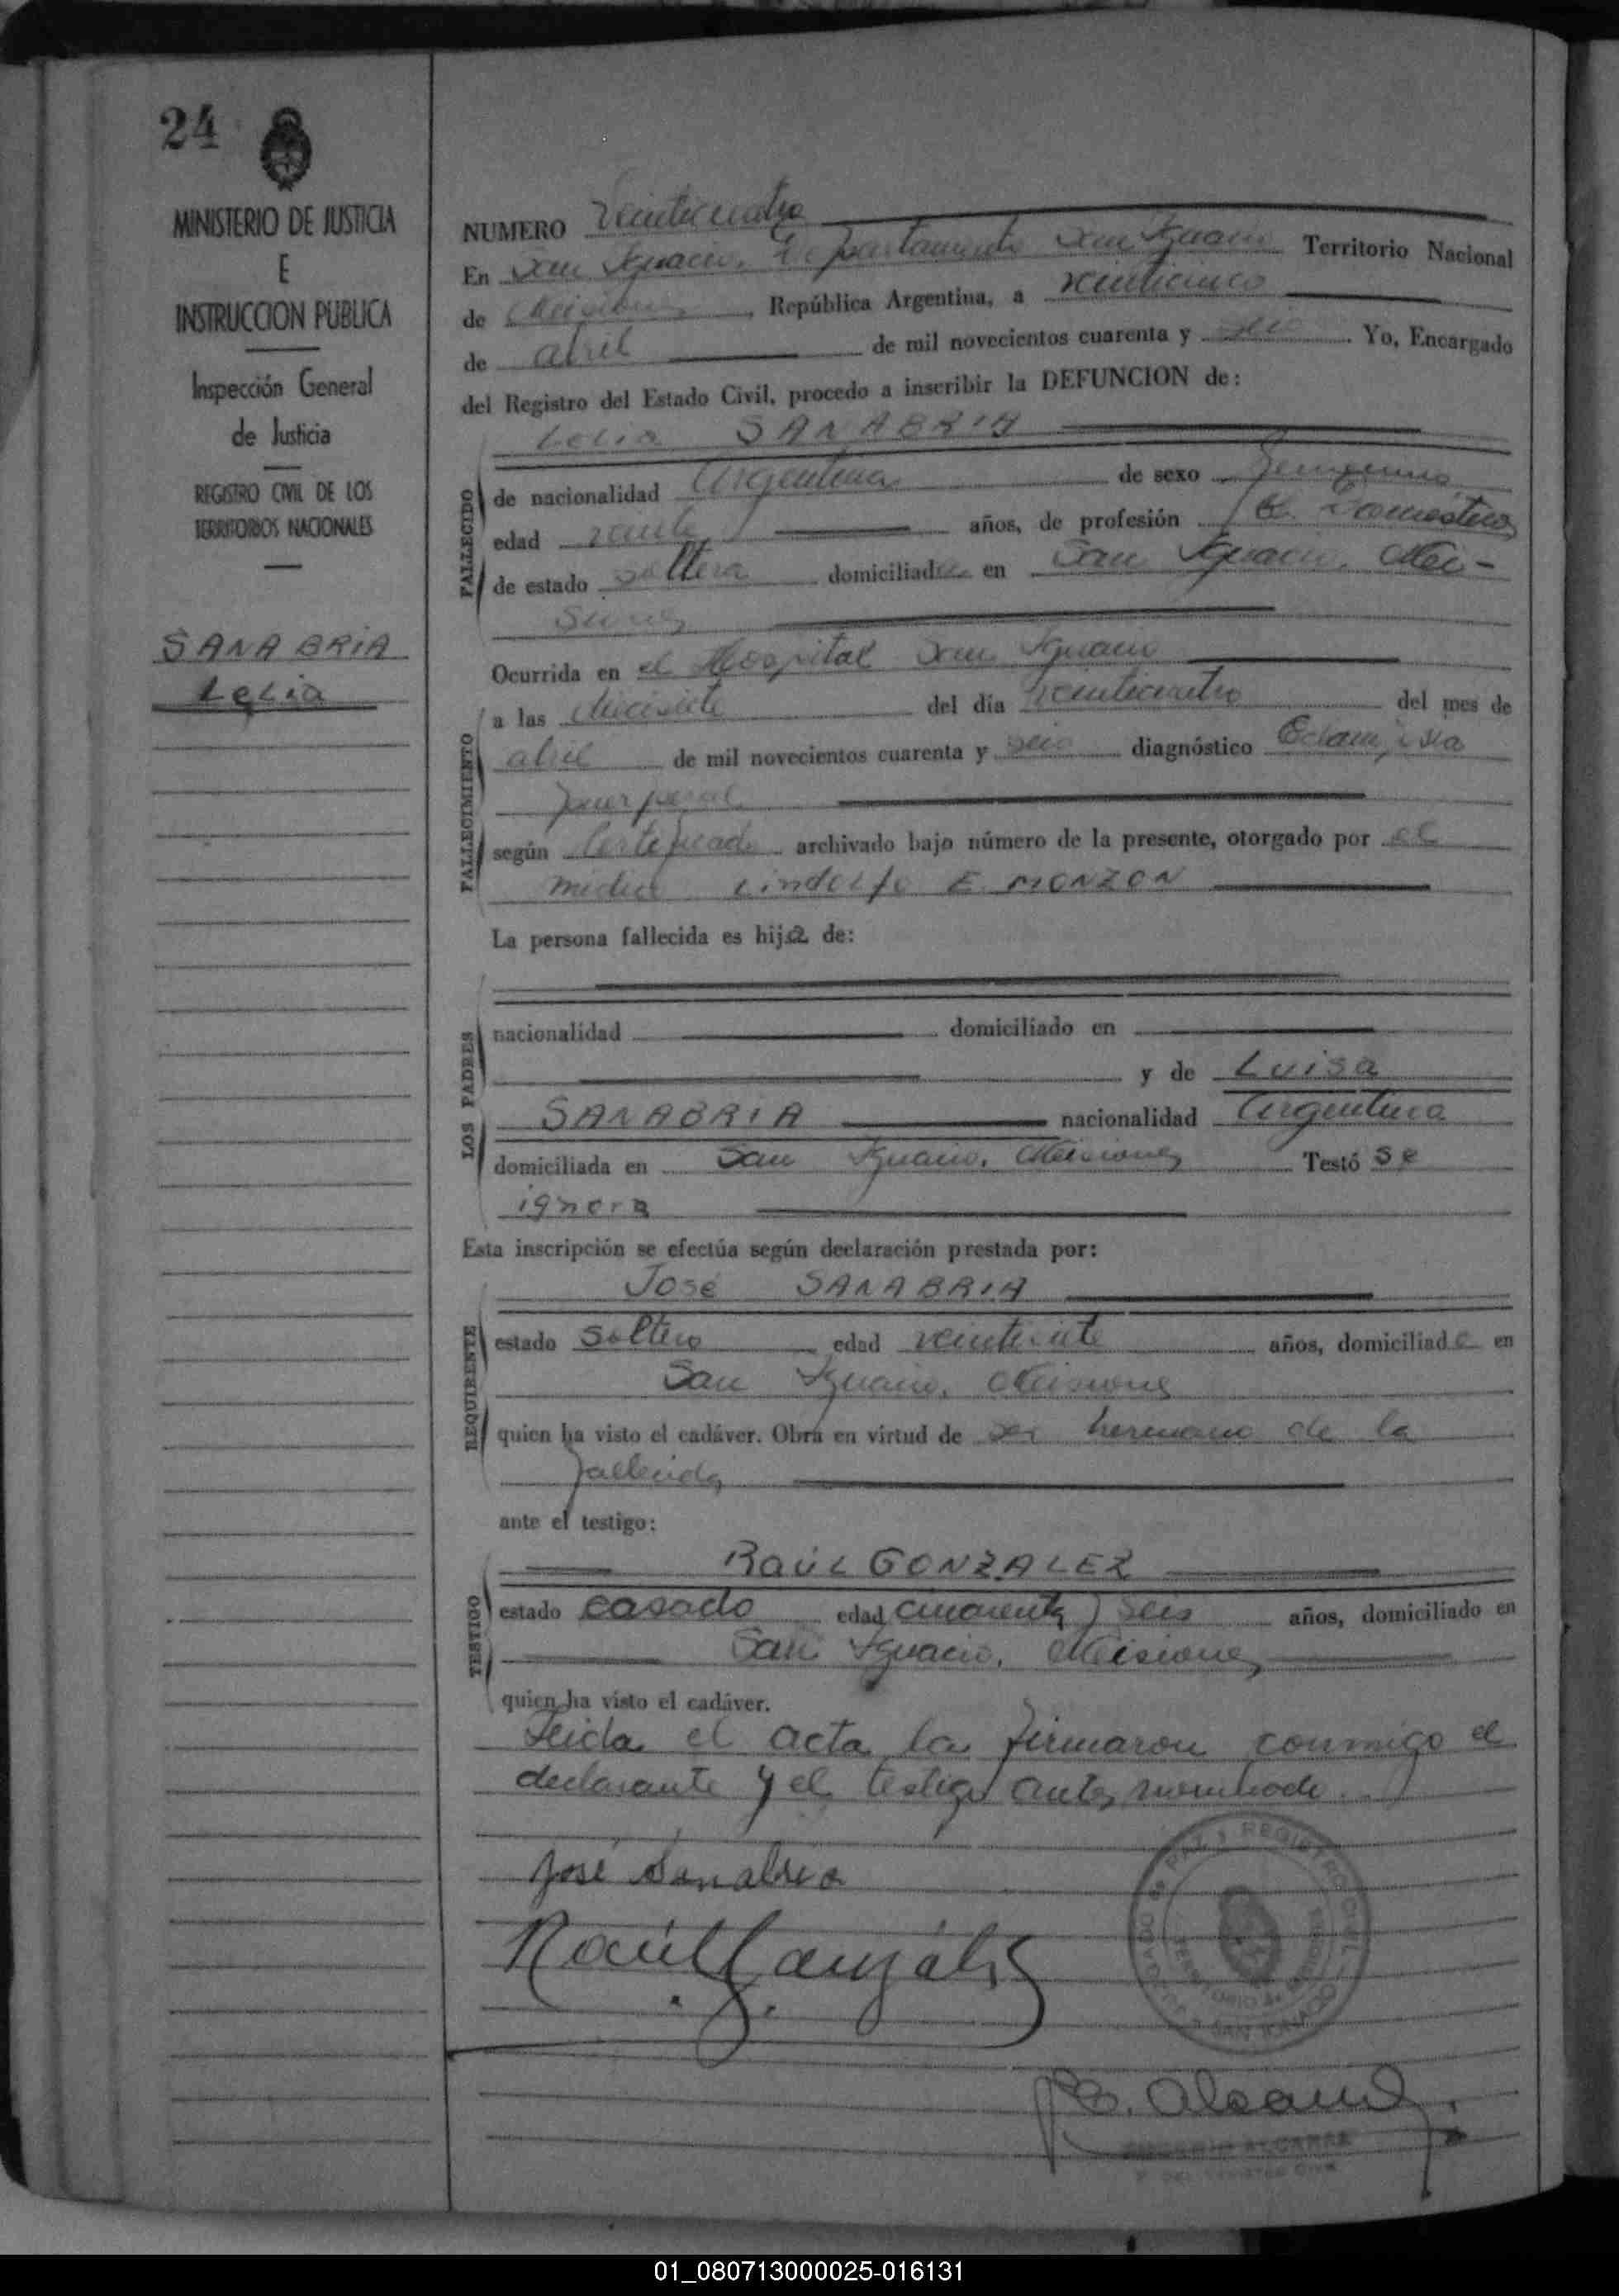 24
MINISTERIO DE JUSTICIA
E
INSTRUCCION PUBLICA
Inspección General
de Justicia
REGISTRO CIVIL DE LOS
TERRITORIOS NACIONALES
SANABRIA
Lelia
NUMERO Veinticuatro
En San Ignacio, Departamento San Ignacio Territorio Nacional
de Misiones, República Argentina, a veinticinco
de abril de mil novecientos cuarenta y seis. Yo, Encargado
del Registro del Estado Civil, procedo a inscribir la DEFUNCION de:
Lelia SANABRIA
FALLECIDO
de nacionalidad Argentina de sexo femenino
edad veinte años, de profesión Q. Domésticos
de estado soltera domiciliada en San Ignacio, Mi-
siones
Ocurrida en el Hospital San Ignacio
FALLECIMIENTO
a las diecisiete del día veinticuatro del mes de
abril de mil novecientos cuarenta y seis diagnóstico Eclampsia
puerperal
según Certificado archivado bajo número de la presente, otorgado por el
médico Lindolfo E. MONZON
La persona fallecida es hija de:
LOS PADRES
nacionalidad domiciliado en
y de Luisa
SANABRIA nacionalidad Argentina
domiciliada en San Ignacio, Misiones Testó se
ignora
Esta inscripción se efectúa según declaración prestada por:
José SANABRIA
REQUIRENTE
estado soltero edad veintisiete años, domiciliado en
San Ignacio, Misiones
quien ha visto el cadáver. Obra en virtud de ser hermano de la
fallecida
ante el testigo:
RAÚL GONZALEZ
TESTIGO
estado casado edad cuarenta y seis años, domiciliado en
San Ignacio, Misiones
quien ha visto el cadáver.
Leida el acta la firmaron conmigo el
declarante y el testigo antes nombrado.
José Sanabria
Raúl González
REGISTRO CIVIL
SAN IGNACIO
E. Alcaraz
ALCARAZ
01_080713000025-016131